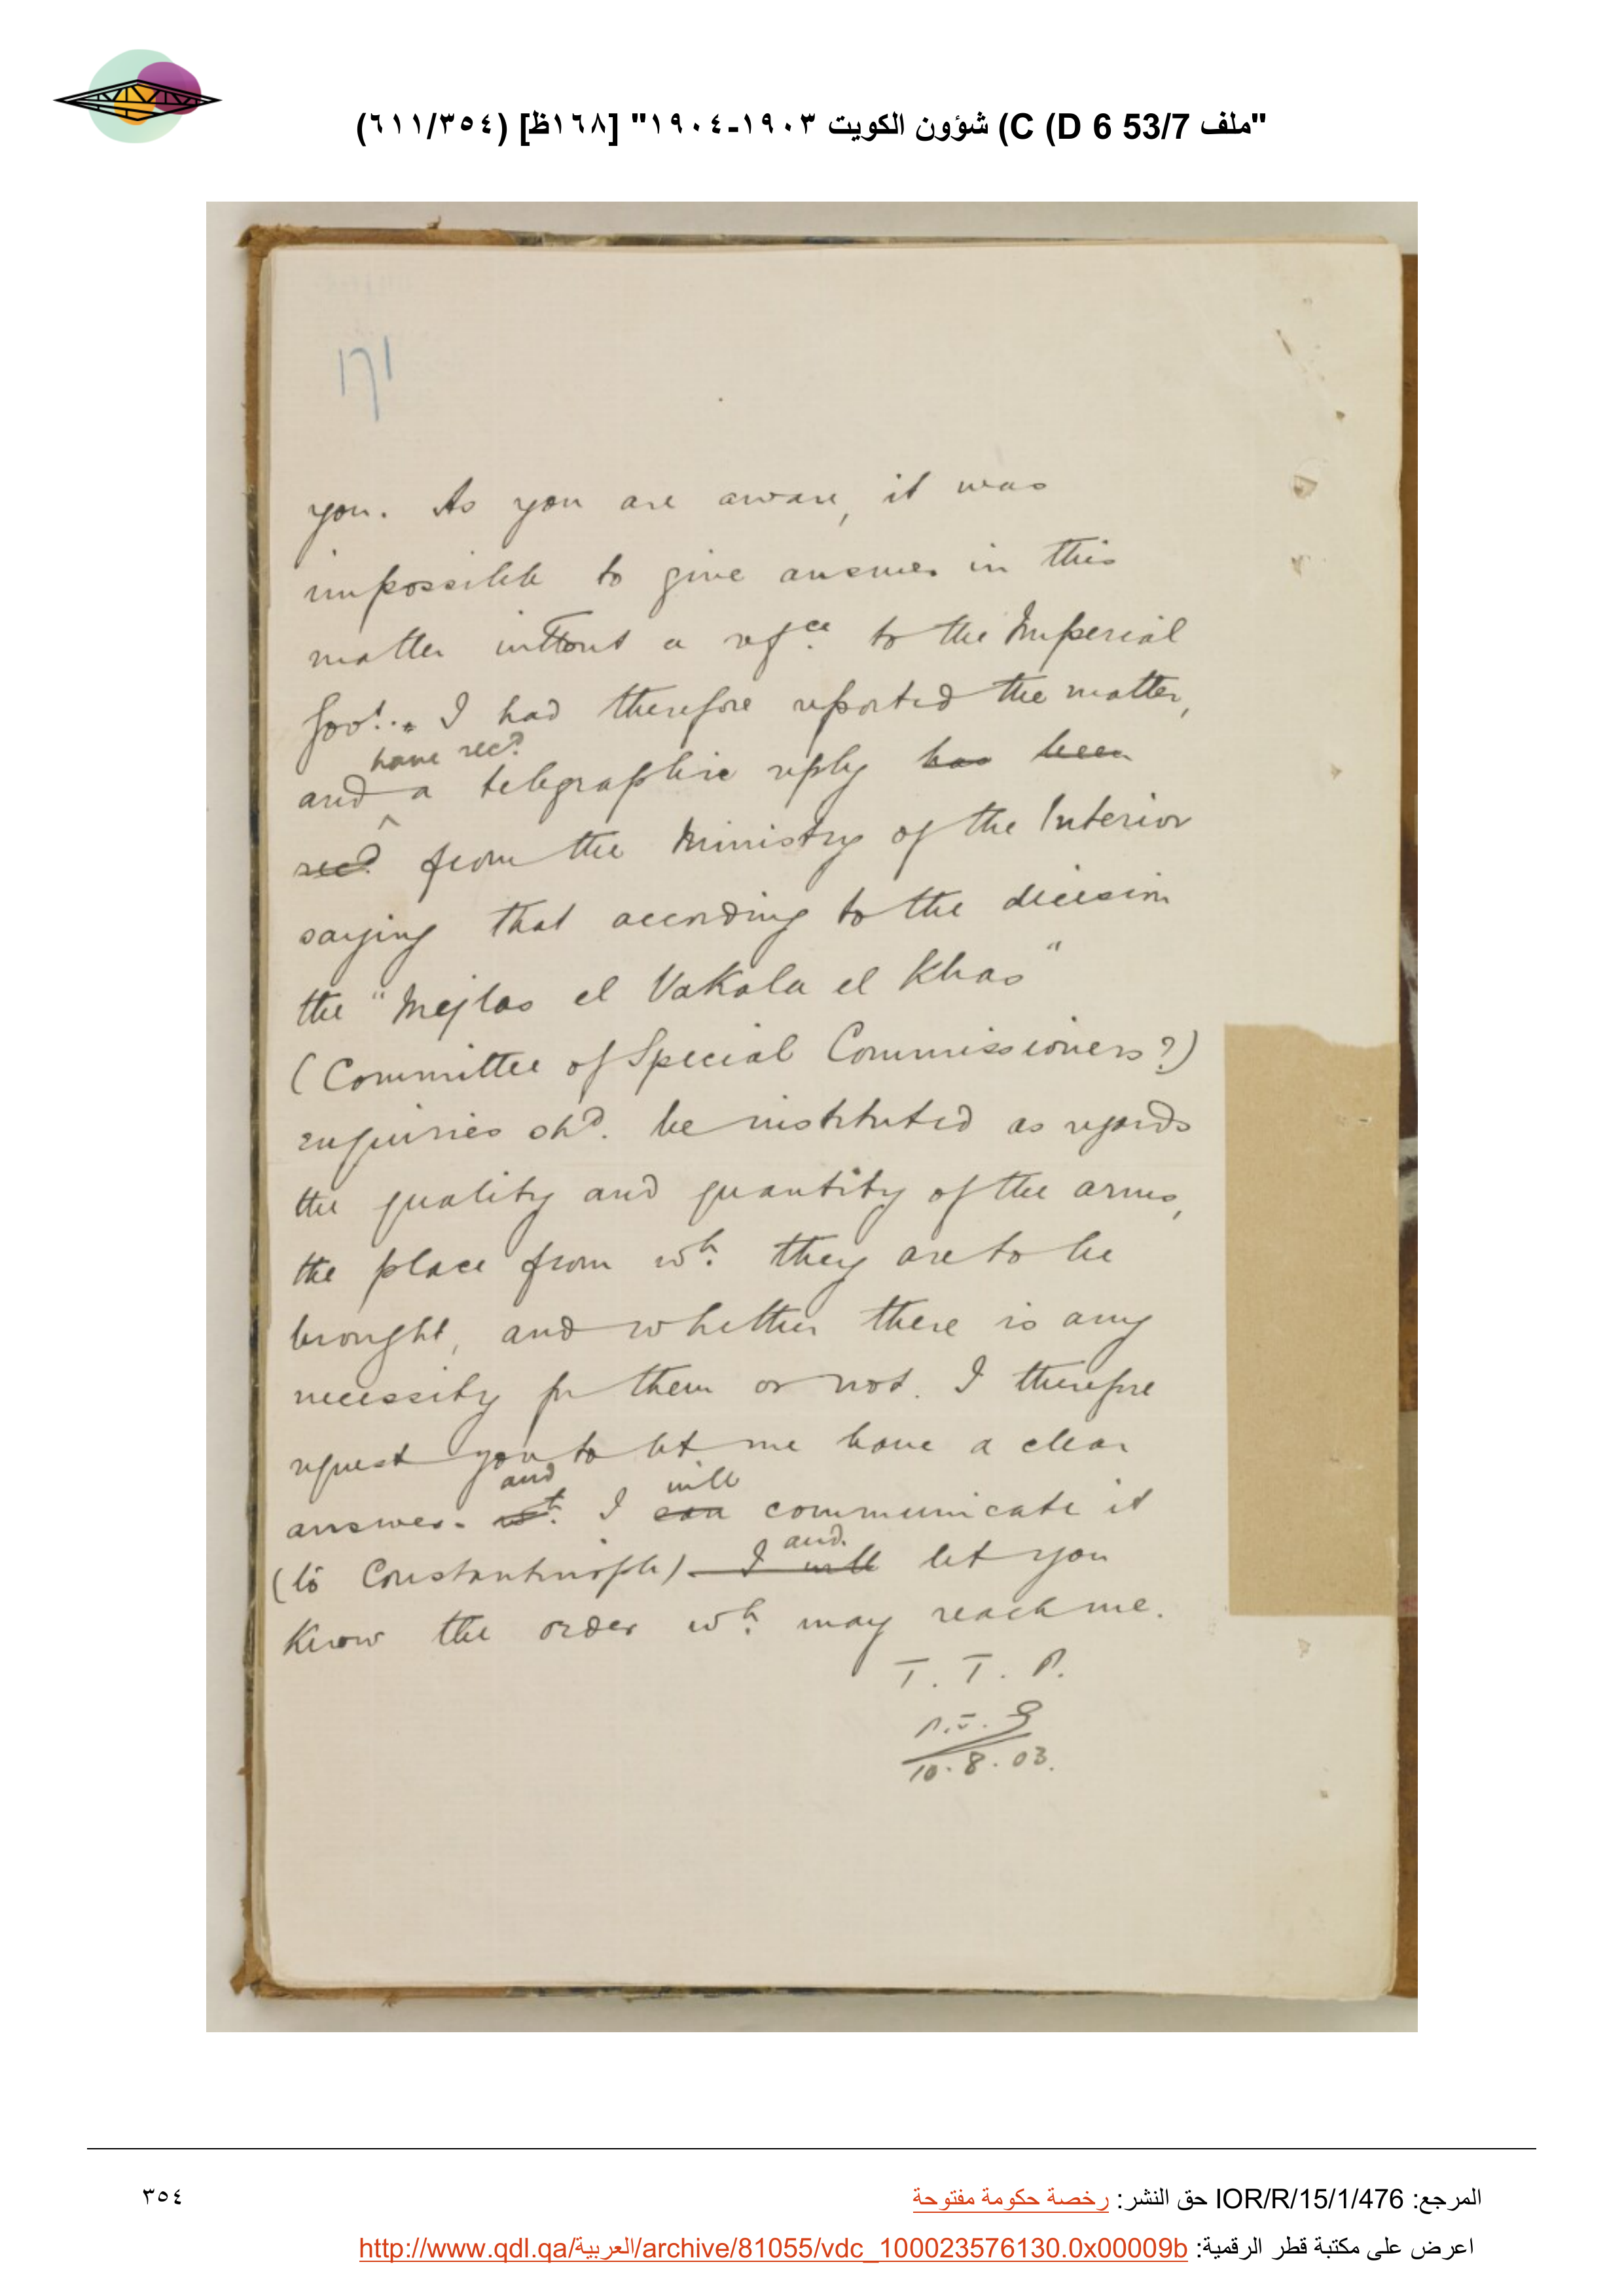 "ملف 53/7 D 6) C) شؤون الكويت ١٩٠٣-١٩٠٤" [١٦٨ظ] (٦١١/٣٥٤)
171
you. As you are aware, it was
impossible to give answer in this
matter without a refce. to the Imperial
Govt.. I had therefore reported the matter,
have recd.
and a telegraphic reply has been
recd. from the Ministry of the Interior
saying that according to the decision
the "Mejlas el Vakala el Khas"
(Committee of Special Commissioners?)
enquiries shd. be instituted as regards
the quality and quantity of the arms,
the place from wh. they are to be
brought, and whether there is any
necessity for them or not. I therefore
request you to let me have a clear
and will
answer. wh. I can communicate it
and.
(to Constantinople). I will let you
know the order wh. may reach me.
T. T. P.
10.8.03.
المرجع: IOR/R/15/1/476 حق النشر: رخصة حكومة مفتوحة
٣٥٤
اعرض على مكتبة قطر الرقمية: http://www.qdl.qa/العربية/archive/81055/vdc_100023576130.0x00009b